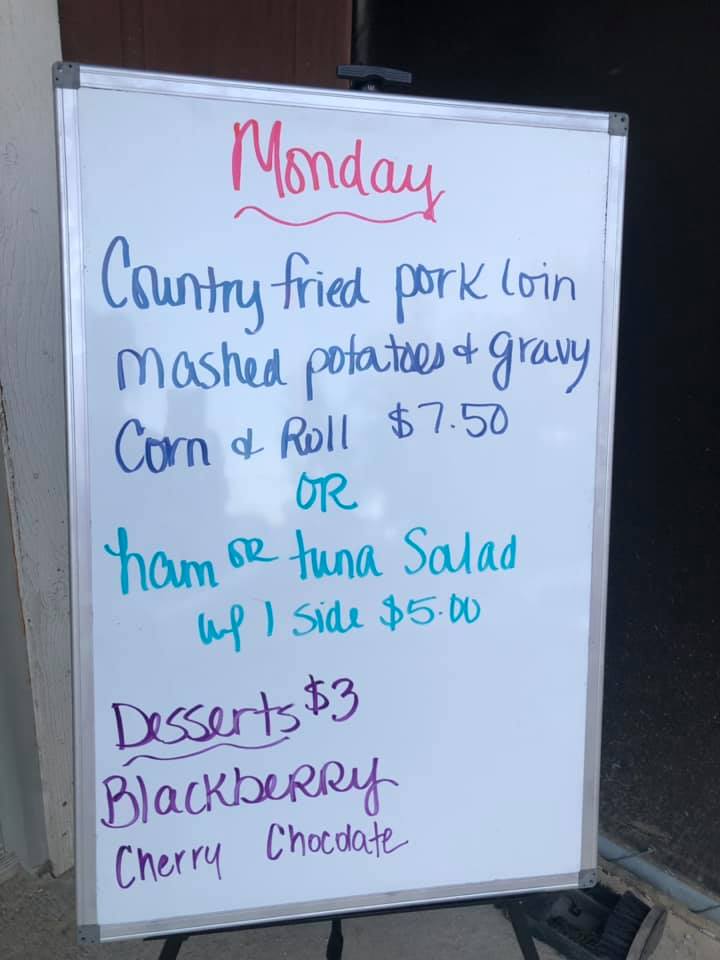 Monday
Country fried pork loin
mashed potatoes & gravy
Corn & Roll $7.50
OR
ham OR tuna Salad
w/ 1 side $5.00
Desserts $3
BlackbeRRy
Cherry Chocolate